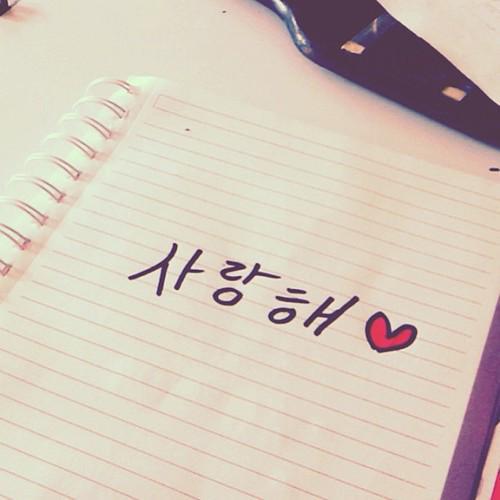 사랑해 ♥